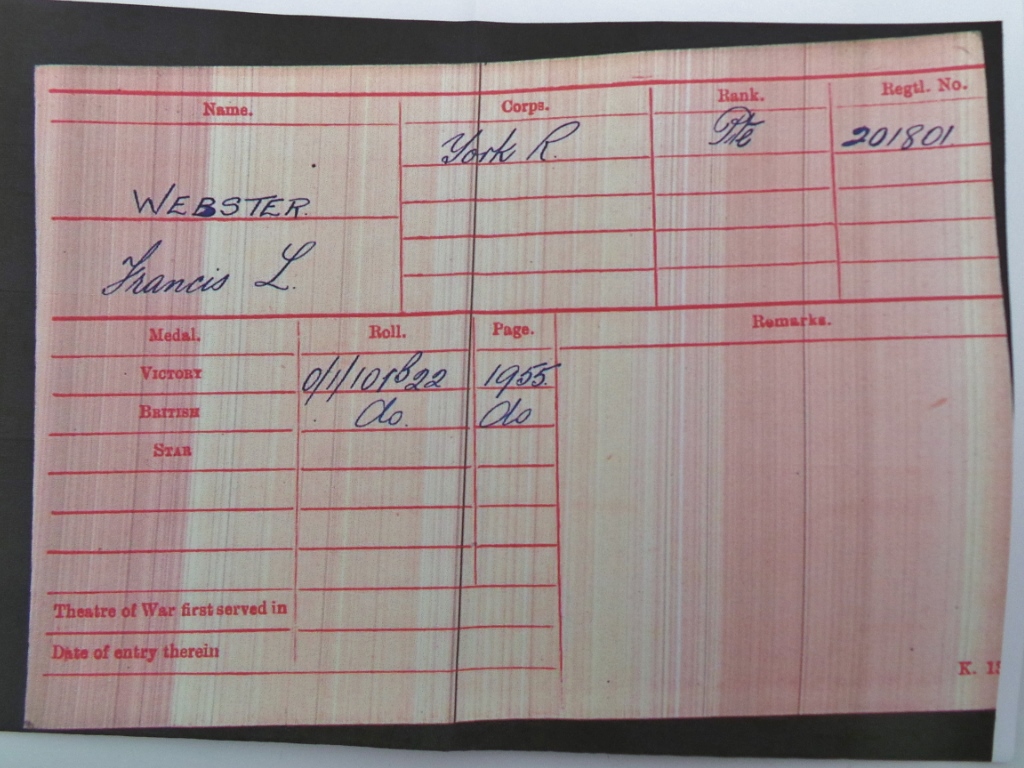 Name. Corps. Rank. Regtl. No.
York R. Pte 201801
WEBSTER.
Francis L.
Medal. Roll. Page. Remarks.
VICTORY 0/1/101B22 1955.
BRITISH do. do
STAR
Theatre of War first served in
Date of entry therein
K. 1